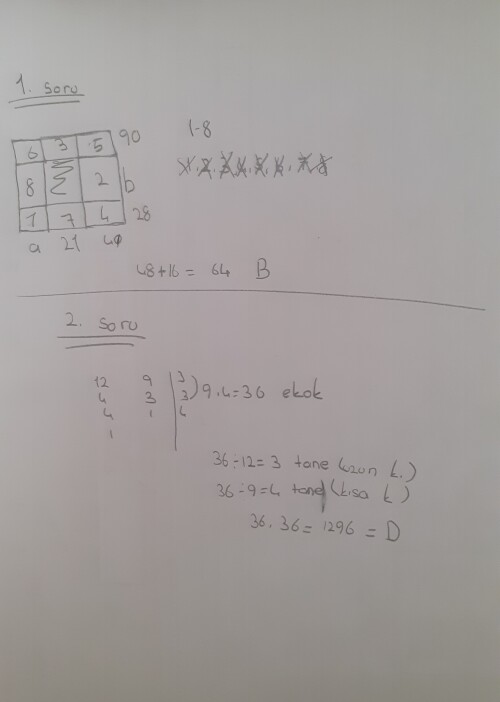 1. soru
6 3 5 90
8 2 b
1 7 4 28
a 21 40
1-8
1, 2, 3, 4, 5, 6, 7, 8
48+16 = 64 B
2. soru
12 9 3
4 3 3 ) 9.4=36 ekok
4 1 4
1
36÷12=3 tane (uzun k.)
36÷9=4 tane (kısa k)
36.36= 1296 = D